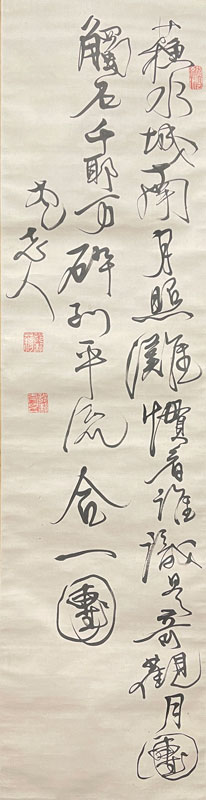 蘓水城南月照灘慣看誰識是奇觀月團
觸石千耶万碎到平流合一團
老人